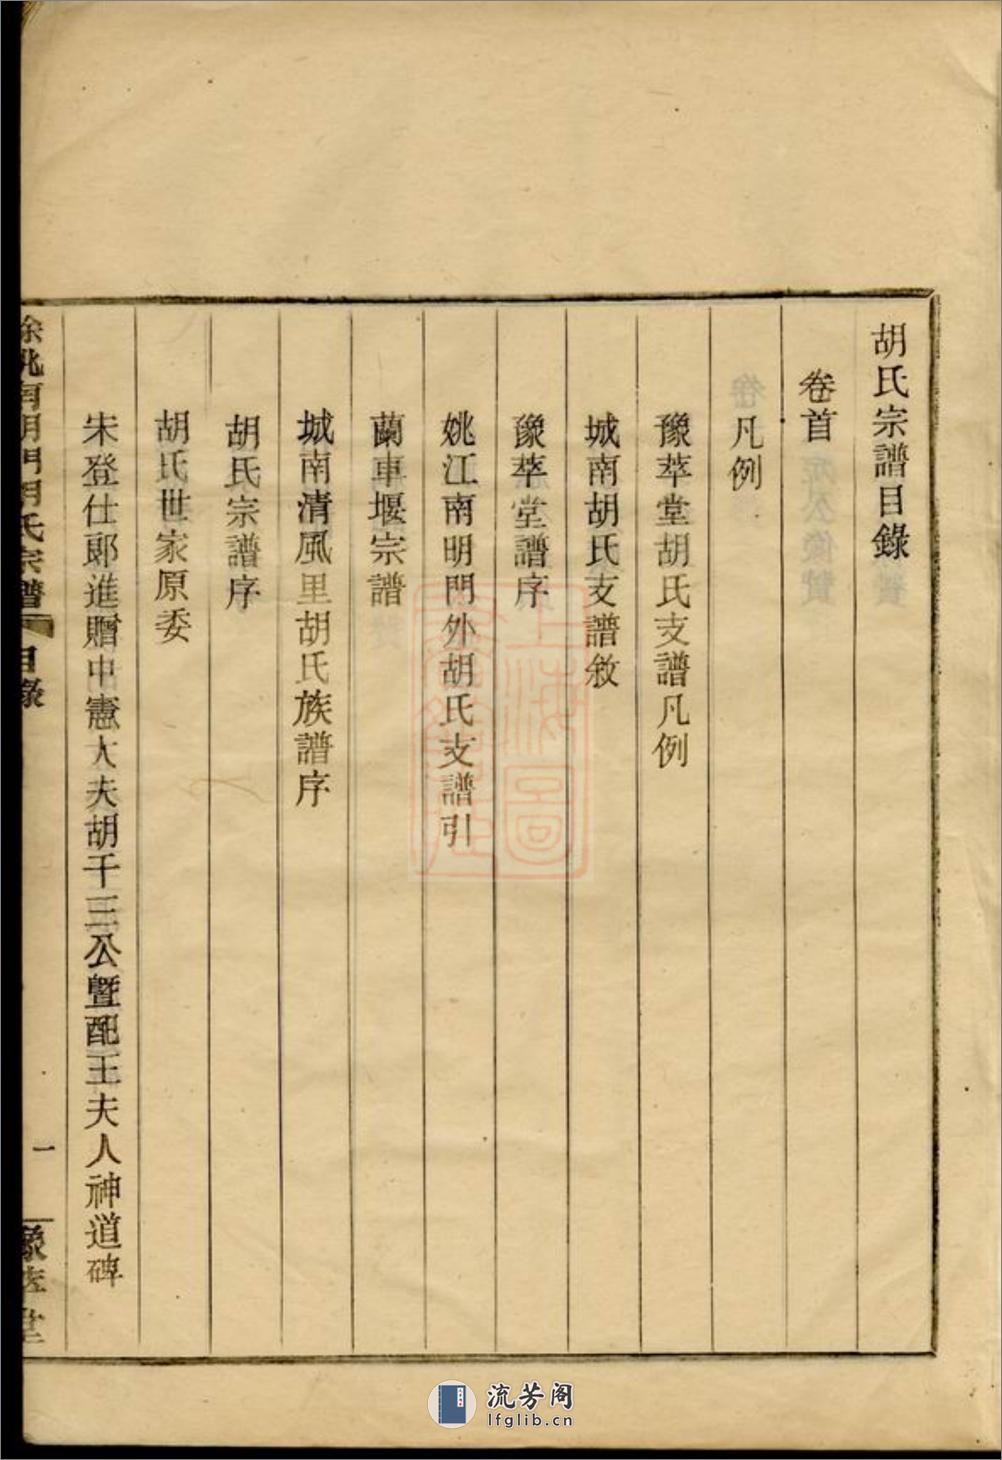 胡氏宗譜目錄
卷首
凡例
豫萃堂胡氏支譜凡例
城南胡氏支譜敘
豫萃堂譜序
姚江南明門外胡氏支譜引
蘭車堰宗譜
城南清風里胡氏族譜序
胡氏宗譜序
胡氏世家原委
宋登仕郎進贈中憲大夫胡千三公曁配王夫人神道碑
氏宗譜
目錄
一
堂
流芳阁
lfglib.cn